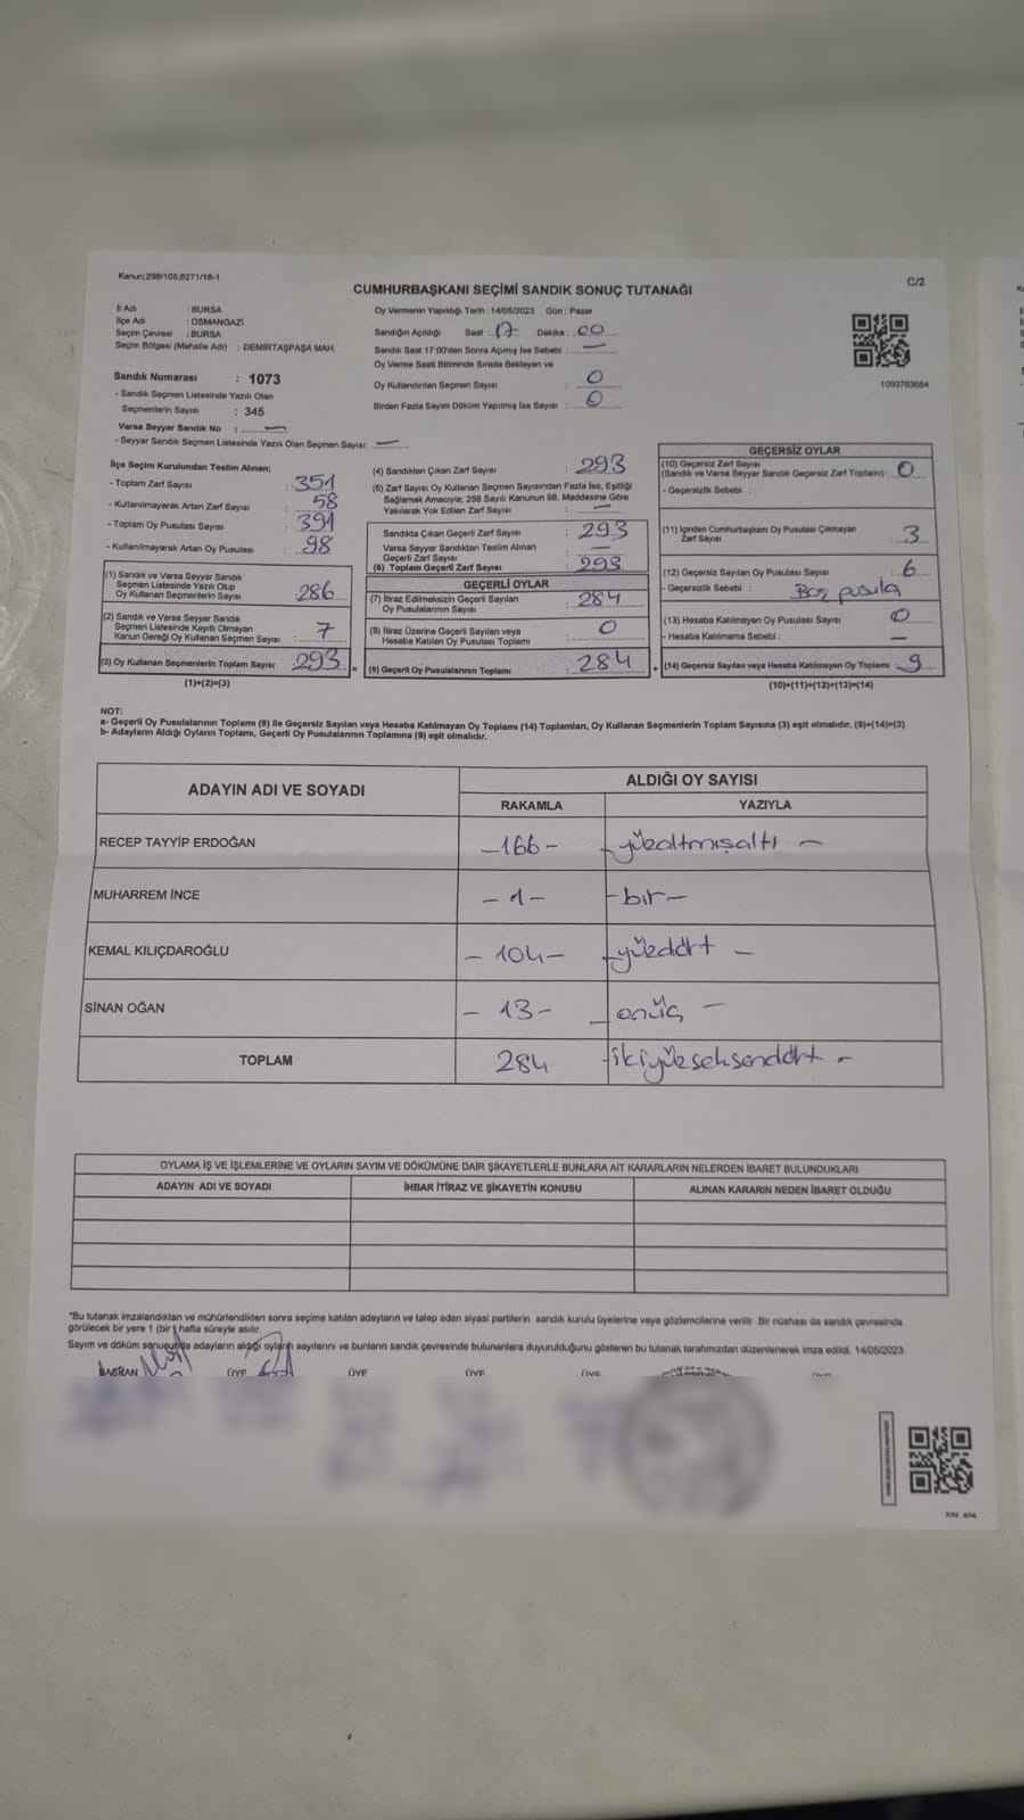 Kanun:298/105,6271/18-1
C/2
CUMHURBAŞKANI SEÇİMİ SANDIK SONUÇ TUTANAĞI
İl Adı : BURSA
İlçe Adı : OSMANGAZİ
Seçim Çevresi : BURSA
Seçim Bölgesi (Mahalle Adı) : DEMİRTAŞPAŞA MAH.
Sandık Numarası : 1073
- Sandık Seçmen Listesinde Yazılı Olan
Seçmenlerin Sayısı : 345
Varsa Seyyar Sandık No : —
- Seyyar Sandık Seçmen Listesinde Yazılı Olan Seçmen Sayısı: —
Oy Vermenin Yapıldığı Tarih : 14/05/2023 Gün : Pazar
Sandığın Açıldığı Saat : 17 Dakika : 00
Sandık Saat 17:00'den Sonra Açılmış İse Sebebi : —
Oy Verme Saati Bitiminde Sırada Bekleyen ve
Oy Kullandırılan Seçmen Sayısı : 0
Birden Fazla Sayım Döküm Yapılmış İse Sayısı : 0
İlçe Seçim Kurulundan Teslim Alınan;
- Toplam Zarf Sayısı : 351
- Kullanılmayarak Artan Zarf Sayısı : 58
- Toplam Oy Pusulası Sayısı : 391
- Kullanılmayarak Artan Oy Pusulası : 98
(1) Sandık ve Varsa Seyyar Sandık
Seçmen Listesinde Yazılı Olup
Oy Kullanan Seçmenlerin Sayısı : 286
(2) Sandık ve Varsa Seyyar Sandık
Seçmen Listesinde Kayıtlı Olmayan
Kanun Gereği Oy Kullanan Seçmen Sayısı : 7
(3) Oy Kullanan Seçmenlerin Toplam Sayısı : 293
(1)+(2)=(3)
(4) Sandıktan Çıkan Zarf Sayısı : 293
(5) Zarf Sayısı Oy Kullanan Seçmen Sayısından Fazla İse, Eşitliği
Sağlamak Amacıyla; 298 Sayılı Kanunun 98. Maddesine Göre
Yakılarak Yok Edilen Zarf Sayısı : —
Sandıkta Çıkan Geçerli Zarf Sayısı : 293
Varsa Seyyar Sandıktan Teslim Alınan
Geçerli Zarf Sayısı : —
(6) Toplam Geçerli Zarf Sayısı : 293
GEÇERLİ OYLAR
(7) İtiraz Edilmeksizin Geçerli Sayılan
Oy Pusulalarının Sayısı : 284
(8) İtiraz Üzerine Geçerli Sayılan veya
Hesaba Katılan Oy Pusulası Toplamı : 0
(9) Geçerli Oy Pusulalarının Toplamı : 284
GEÇERSİZ OYLAR
(10) Geçersiz Zarf Sayısı
(Sandık ve Varsa Seyyar Sandık Geçersiz Zarf Toplamı) : 0
- Geçersizlik Sebebi :
(11) İçinden Cumhurbaşkanı Oy Pusulası Çıkmayan
Zarf Sayısı : 3
(12) Geçersiz Sayılan Oy Pusulası Sayısı : 6
- Geçersizlik Sebebi : Boş pusula
(13) Hesaba Katılmayan Oy Pusulası Sayısı : 0
- Hesaba Katılmama Sebebi : —
(14) Geçersiz Sayılan veya Hesaba Katılmayan Oy Toplamı : 9
(10)+(11)+(12)+(13)=(14)
NOT:
a- Geçerli Oy Pusulalarının Toplamı (9) ile Geçersiz Sayılan veya Hesaba Katılmayan Oy Toplamı (14) Toplamları, Oy Kullanan Seçmenlerin Toplam Sayısına (3) eşit olmalıdır. (9)+(14)=(3)
b- Adayların Aldığı Oyların Toplamı, Geçerli Oy Pusulalarının Toplamına (9) eşit olmalıdır.
ADAYIN ADI VE SOYADI
ALDIĞI OY SAYISI
RAKAMLA YAZIYLA
RECEP TAYYİP ERDOĞAN -166- - yüzaltmışaltı -
MUHARREM İNCE -1- - bir -
KEMAL KILIÇDAROĞLU -104- - yüzdört -
SİNAN OĞAN -13- - onüç -
TOPLAM 284 - ikiyüzseksendört -
OYLAMA İŞ VE İŞLEMLERİNE VE OYLARIN SAYIM VE DÖKÜMÜNE DAİR ŞİKAYETLERLE BUNLARA AİT KARARLARIN NELERDEN İBARET BULUNDUKLARI
ADAYIN ADI VE SOYADI İHBAR İTİRAZ VE ŞİKAYETİN KONUSU ALINAN KARARIN NEDEN İBARET OLDUĞU
"Bu tutanak imzalandıktan ve mühürlendikten sonra seçime katılan adayların ve talep eden siyasi partilerin sandık kurulu üyelerine veya gözlemcilerine verilir. Bir nüshası da sandık çevresinde
görülecek bir yere 1 (bir) hafta süreyle asılır.
Sayım ve döküm sonucunda adayların aldığı oyların sayılarını ve bunların sandık çevresinde bulunanlara duyurulduğunu gösteren bu tutanak tarafımızdan düzenlenerek imza edildi. 14/05/2023
ÜYE ÜYE ÜYE ÜYE